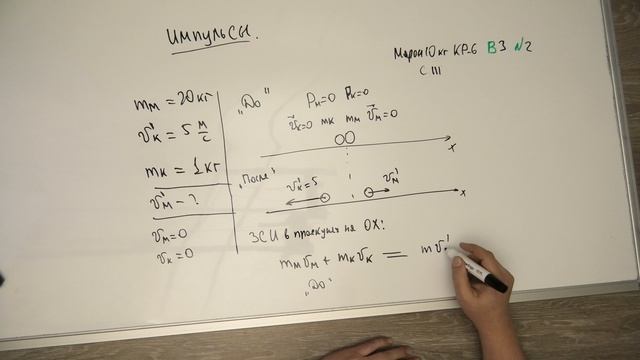 ИМПУЛЬСЫ.
Марон 10 кг КР-6 В3 №2
С III
mм = 20 кг
v'к = 5 м/с
mк = 1 кг
v'м - ?
vм = 0
vк = 0
"До"
Pм=0 Pк=0
v⃗к=0 mк mм v⃗м=0
x
"После"
v'к=5 v'м
x
ЗСИ в проекциях на OX:
mмvм + mкvк = mv'
"До"